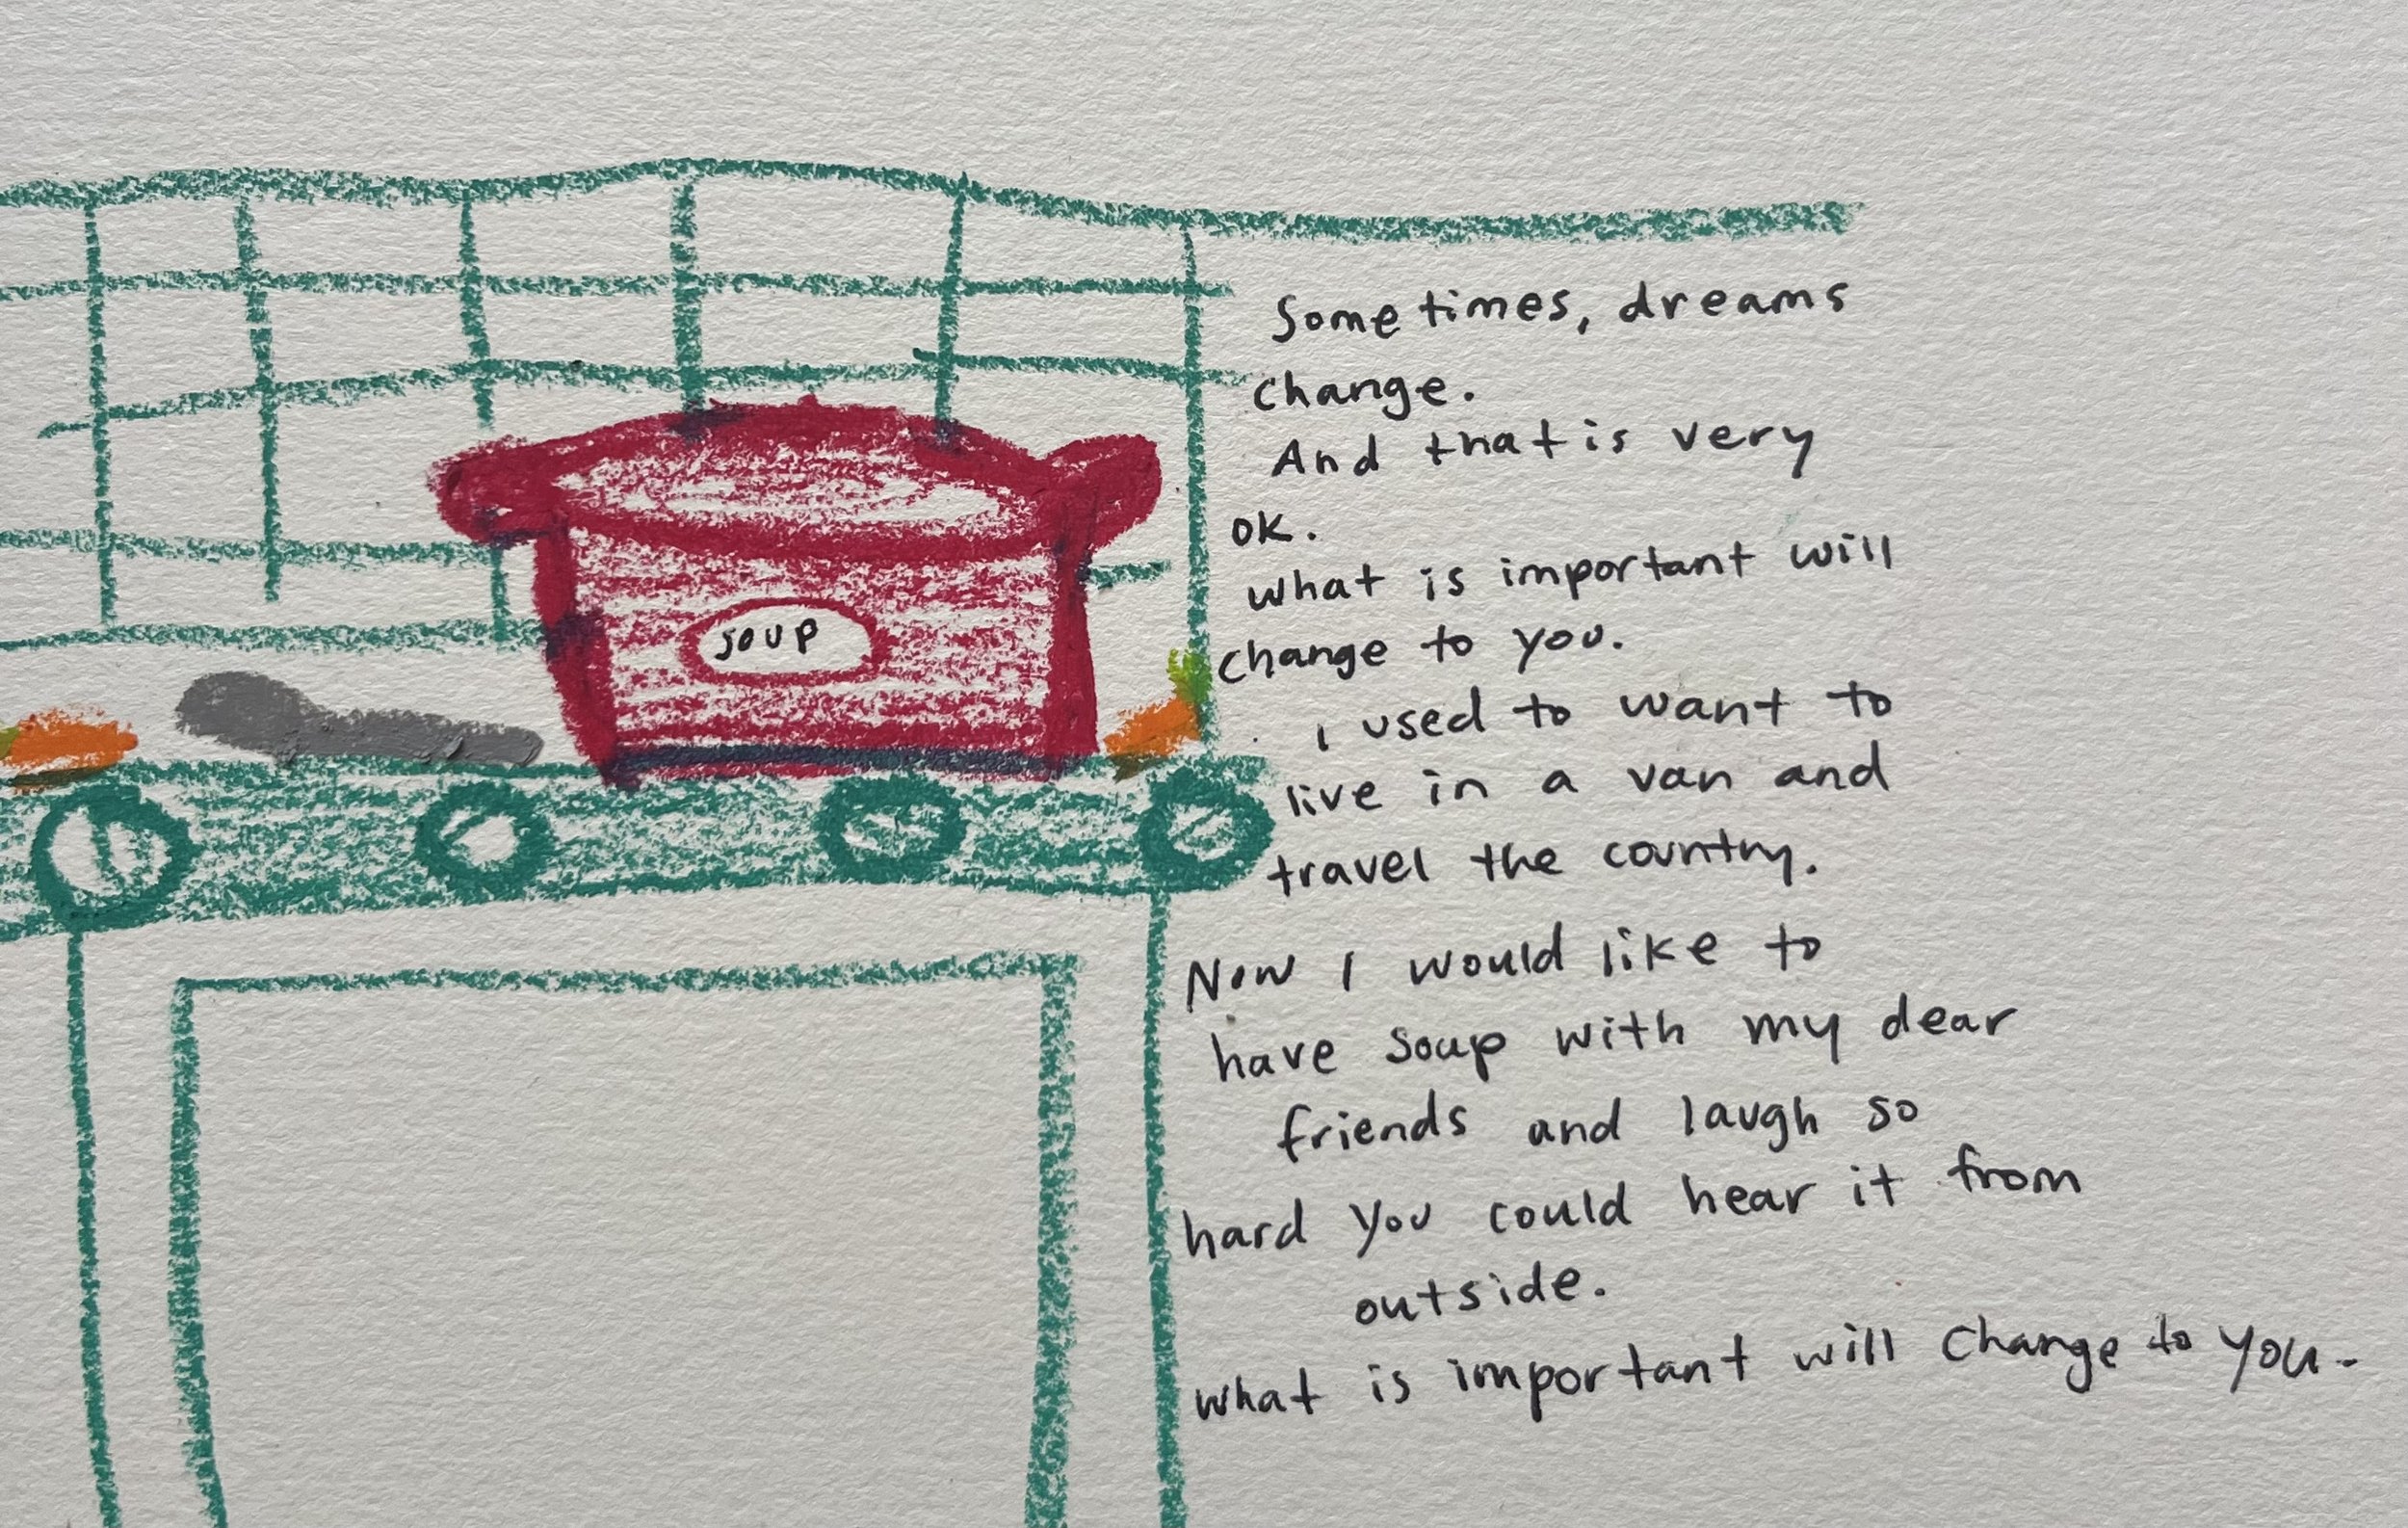 soup
Sometimes, dreams
change.
And that is very
ok.
what is important will
change to you.
I used to want to
live in a van and
travel the country.
Now I would like to
have soup with my dear
friends and laugh so
hard you could hear it from
outside.
what is important will change to you.